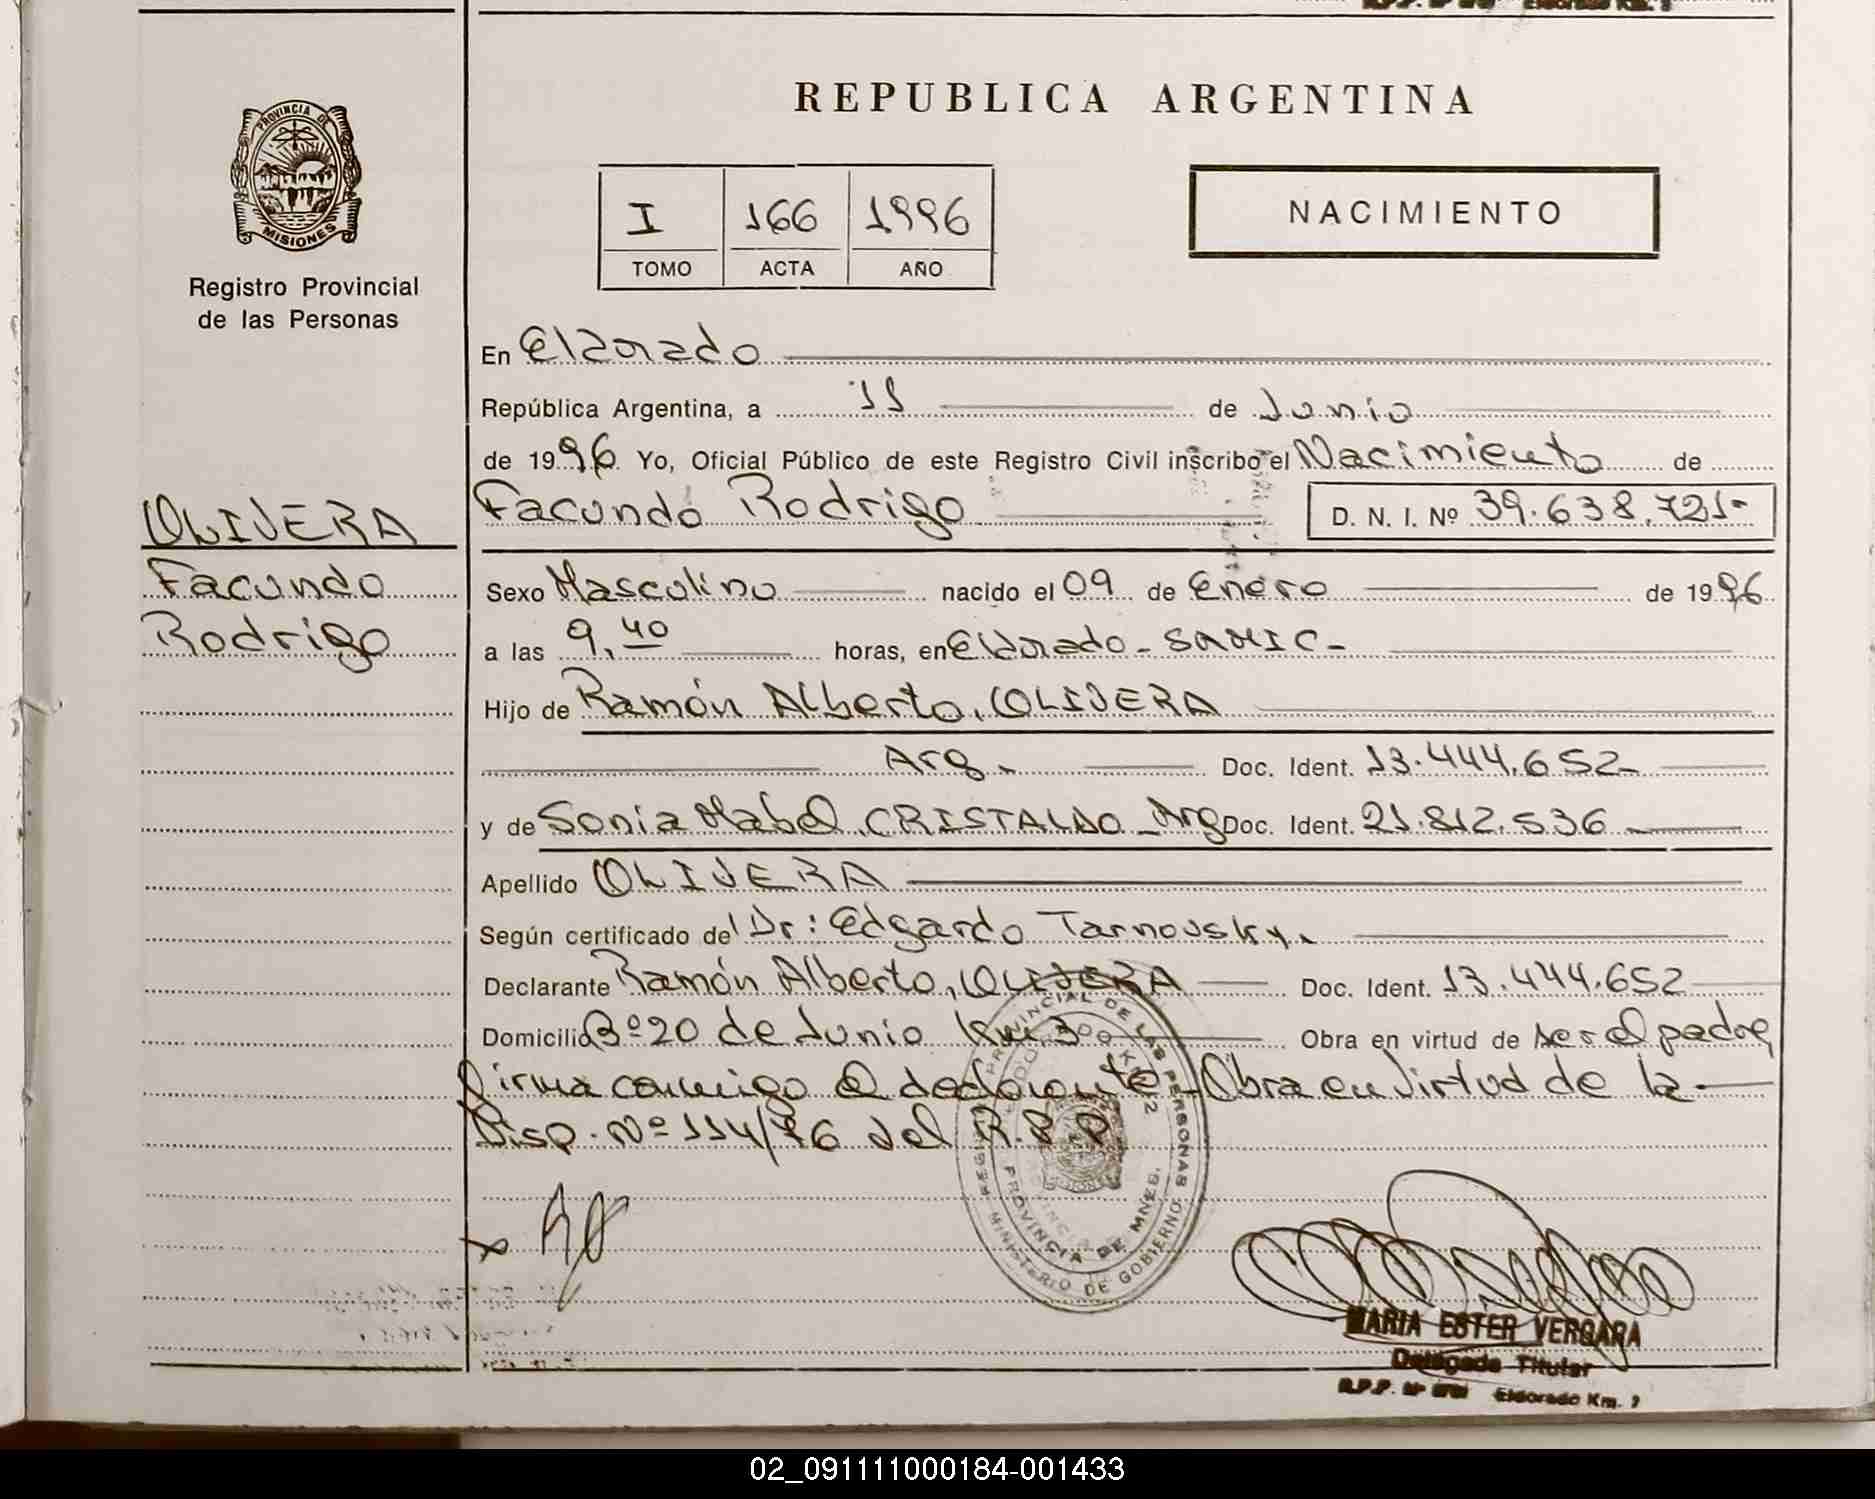 PROVINCIA DE
MISIONES
Registro Provincial
de las Personas
REPUBLICA ARGENTINA
I 166 1996
TOMO ACTA AÑO
NACIMIENTO
En Eldorado
República Argentina, a 11 de Junio
de 1996 Yo, Oficial Público de este Registro Civil inscribo el Nacimiento de
OLIVERA
Facundo
Rodrigo
Facundo Rodrigo D. N. I. Nº 39.638.721-
Sexo Masculino nacido el 09 de Enero de 1996
a las 9,40 horas, en Eldorado - SAMIC -
Hijo de Ramón Alberto, OLIVERA
Arg. Doc. Ident. 13.444.652
y de Sonia Mabel, CRISTALDO - Arg Doc. Ident. 21.812.536
Apellido OLIVERA
Según certificado del Dr: Edgardo Tarnovsky.
Declarante Ramón Alberto, OLIVERA Doc. Ident. 13.444.652
Domicilio Bº 20 de Junio Km 3 Obra en virtud de ser el padre,
firma conmigo el declarante - Obra en virtud de la
Disp. Nº 114/96 del R.P.P
REGISTRO PROVINCIAL DE LAS PERSONAS
MINISTERIO DE GOBIERNO
PROVINCIA DE MNES.
x
MARIA ESTER VERGARA
Delegada Titular
R.P.P. Nº Eldorado Km.
02_091111000184-001433